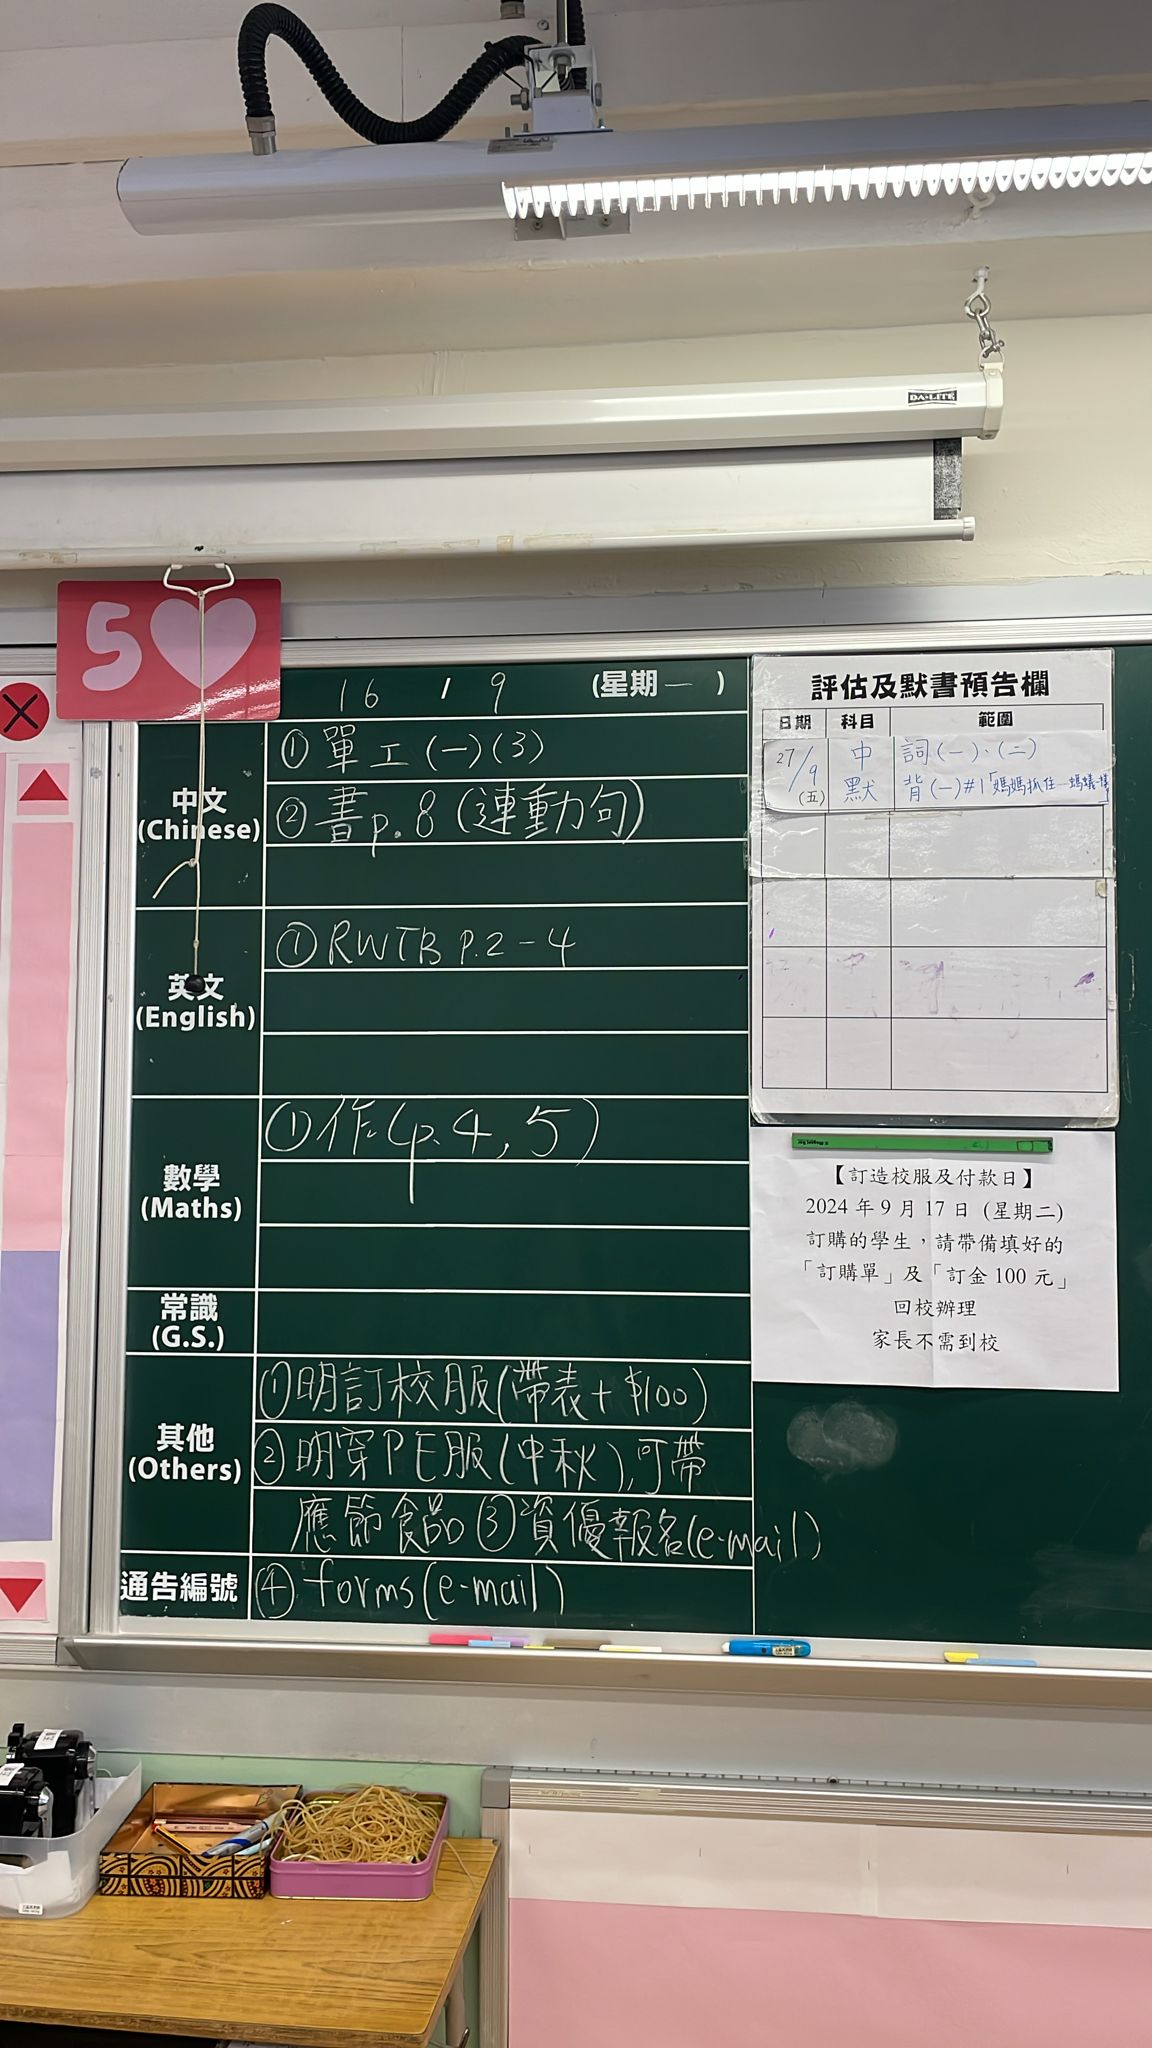 DA-LITE
5
16 / 9 (星期一)
中文
(Chinese)
① 單工(一)(3)
② 書p.8(連動句)
英文
(English)
① RWTB P.2-4
數學
(Maths)
① 作(p.4,5)
常識
(G.S.)
其他
(Others)
① 明訂校服(帶表+$100)
② 明穿PE服(中秋),可帶
應節食品 ③ 資優報名(e-mail)
通告編號
④ forms(e-mail)
評估及默書預告欄
日期 科目 範圍
27/9 (五) 中默 詞(一)、(二)
背(一)#1「媽媽抓住
【訂造校服及付款日】
2024 年 9 月 17 日 (星期二)
訂購的學生，請帶備填好的
「訂購單」及「訂金 100 元」
回校辦理
家長不需到校